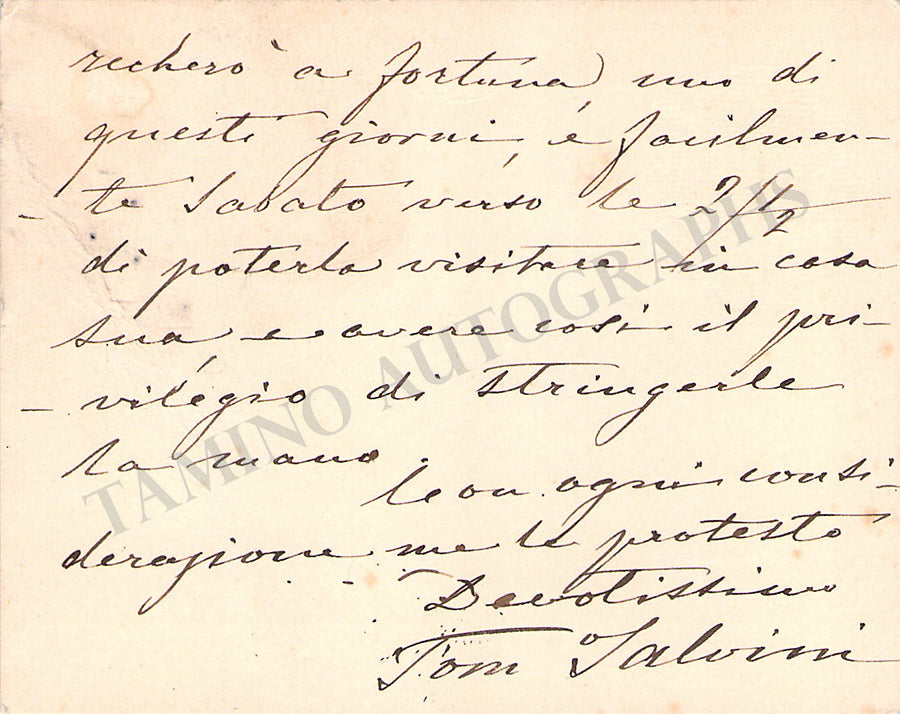 recherò a fortuna, uno di
questi giorni, e facilmen-
te Sabato verso le 2 1/2
di poterla visitare in casa
sua, e avere così il pri-
vilegio di stringerle
la mano.
Con ogni consi-
derazione me le protesto
Devotissimo
Tom Salvini
TAMINO AUTOGRAPHS